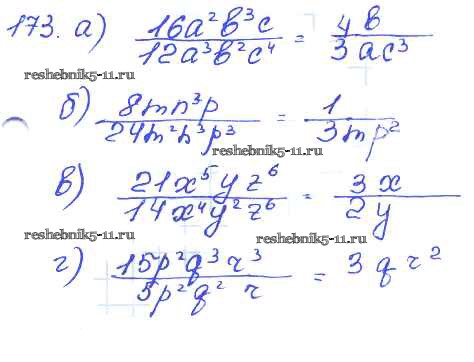 173. а) 16a²b³c / 12a³b²c⁴ = 4b / 3ac³
reshebnik5-11.ru
б) 8mn³p / 24m²n³p³ = 1 / 3mp²
reshebnik5-11.ru
в) 21x⁵yz⁶ / 14x⁴y²z⁶ = 3x / 2y
reshebnik5-11.ru reshebnik5-11.ru
г) 15p²q³r³ / 5p²q²r = 3qr²